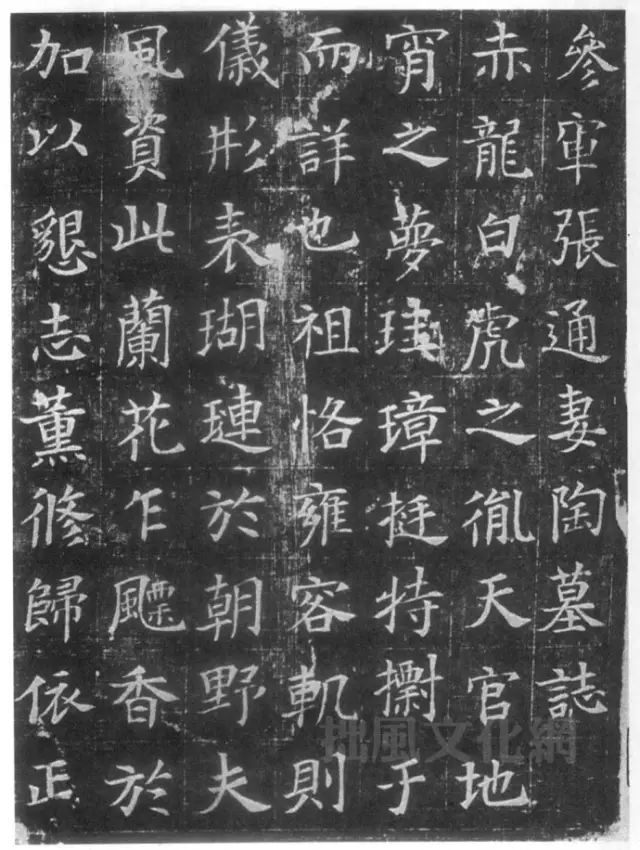 參軍張通妻陶墓誌
赤龍白虎之胤天官地
宵之夢珪璋挺特于
而詳也祖恪雍容軌則
儀形表瑚璉於朝野夫
風資此蘭花乍飃香於
加以懇志薰修歸依正
拙風文化網